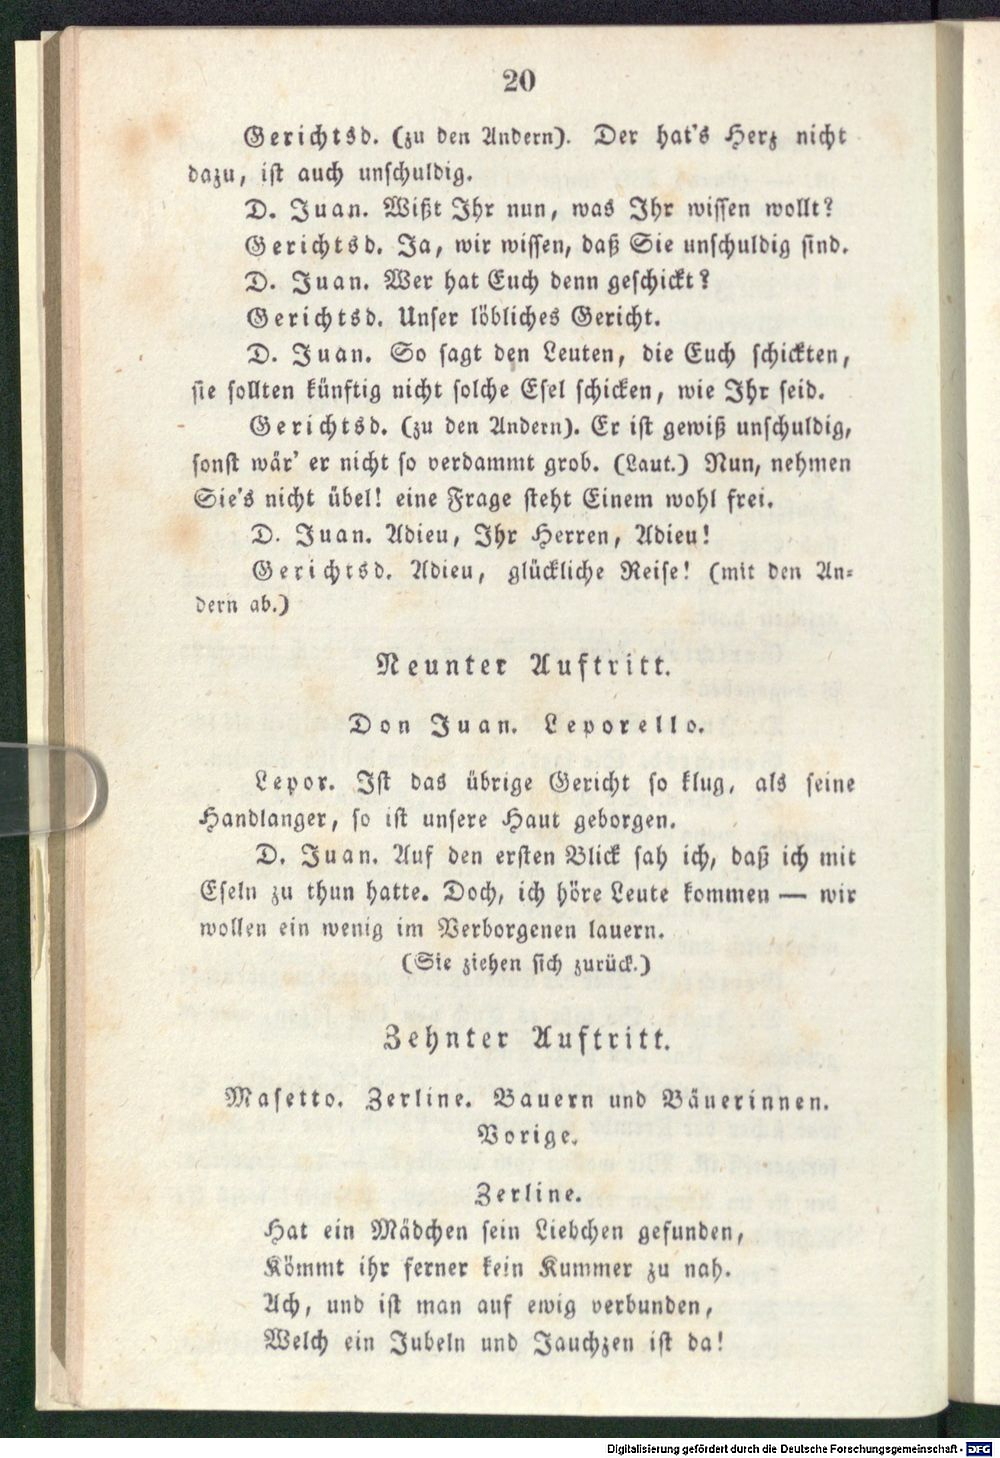 20
Gerichtsd. (zu den Andern). Der hat's Herz nicht
dazu, ist auch unschuldig.
D. Juan. Wißt Ihr nun, was Ihr wissen wollt?
Gerichtsd. Ja, wir wissen, daß Sie unschuldig sind.
D. Juan. Wer hat Euch denn geschickt?
Gerichtsd. Unser löbliches Gericht.
D. Juan. So sagt den Leuten, die Euch schickten,
sie sollten künftig nicht solche Esel schicken, wie Ihr seid.
Gerichtsd. (zu den Andern). Er ist gewiß unschuldig,
sonst wär' er nicht so verdammt grob. (Laut.) Nun, nehmen
Sie's nicht übel! eine Frage steht Einem wohl frei.
D. Juan. Adieu, Ihr Herren, Adieu!
Gerichtsd. Adieu, glückliche Reise! (mit den An-
dern ab.)
Neunter Auftritt.
Don Juan. Leporello.
Lepor. Ist das übrige Gericht so klug, als seine
Handlanger, so ist unsere Haut geborgen.
D. Juan. Auf den ersten Blick sah ich, daß ich mit
Eseln zu thun hatte. Doch, ich höre Leute kommen — wir
wollen ein wenig im Verborgenen lauern.
(Sie ziehen sich zurück.)
Zehnter Auftritt.
Masetto. Zerline. Bauern und Bäuerinnen.
Vorige.
Zerline.
Hat ein Mädchen sein Liebchen gefunden,
Kömmt ihr ferner kein Kummer zu nah.
Ach, und ist man auf ewig verbunden,
Welch ein Jubeln und Jauchzen ist da!
Digitalisierung gefördert durch die Deutsche Forschungsgemeinschaft - DFG